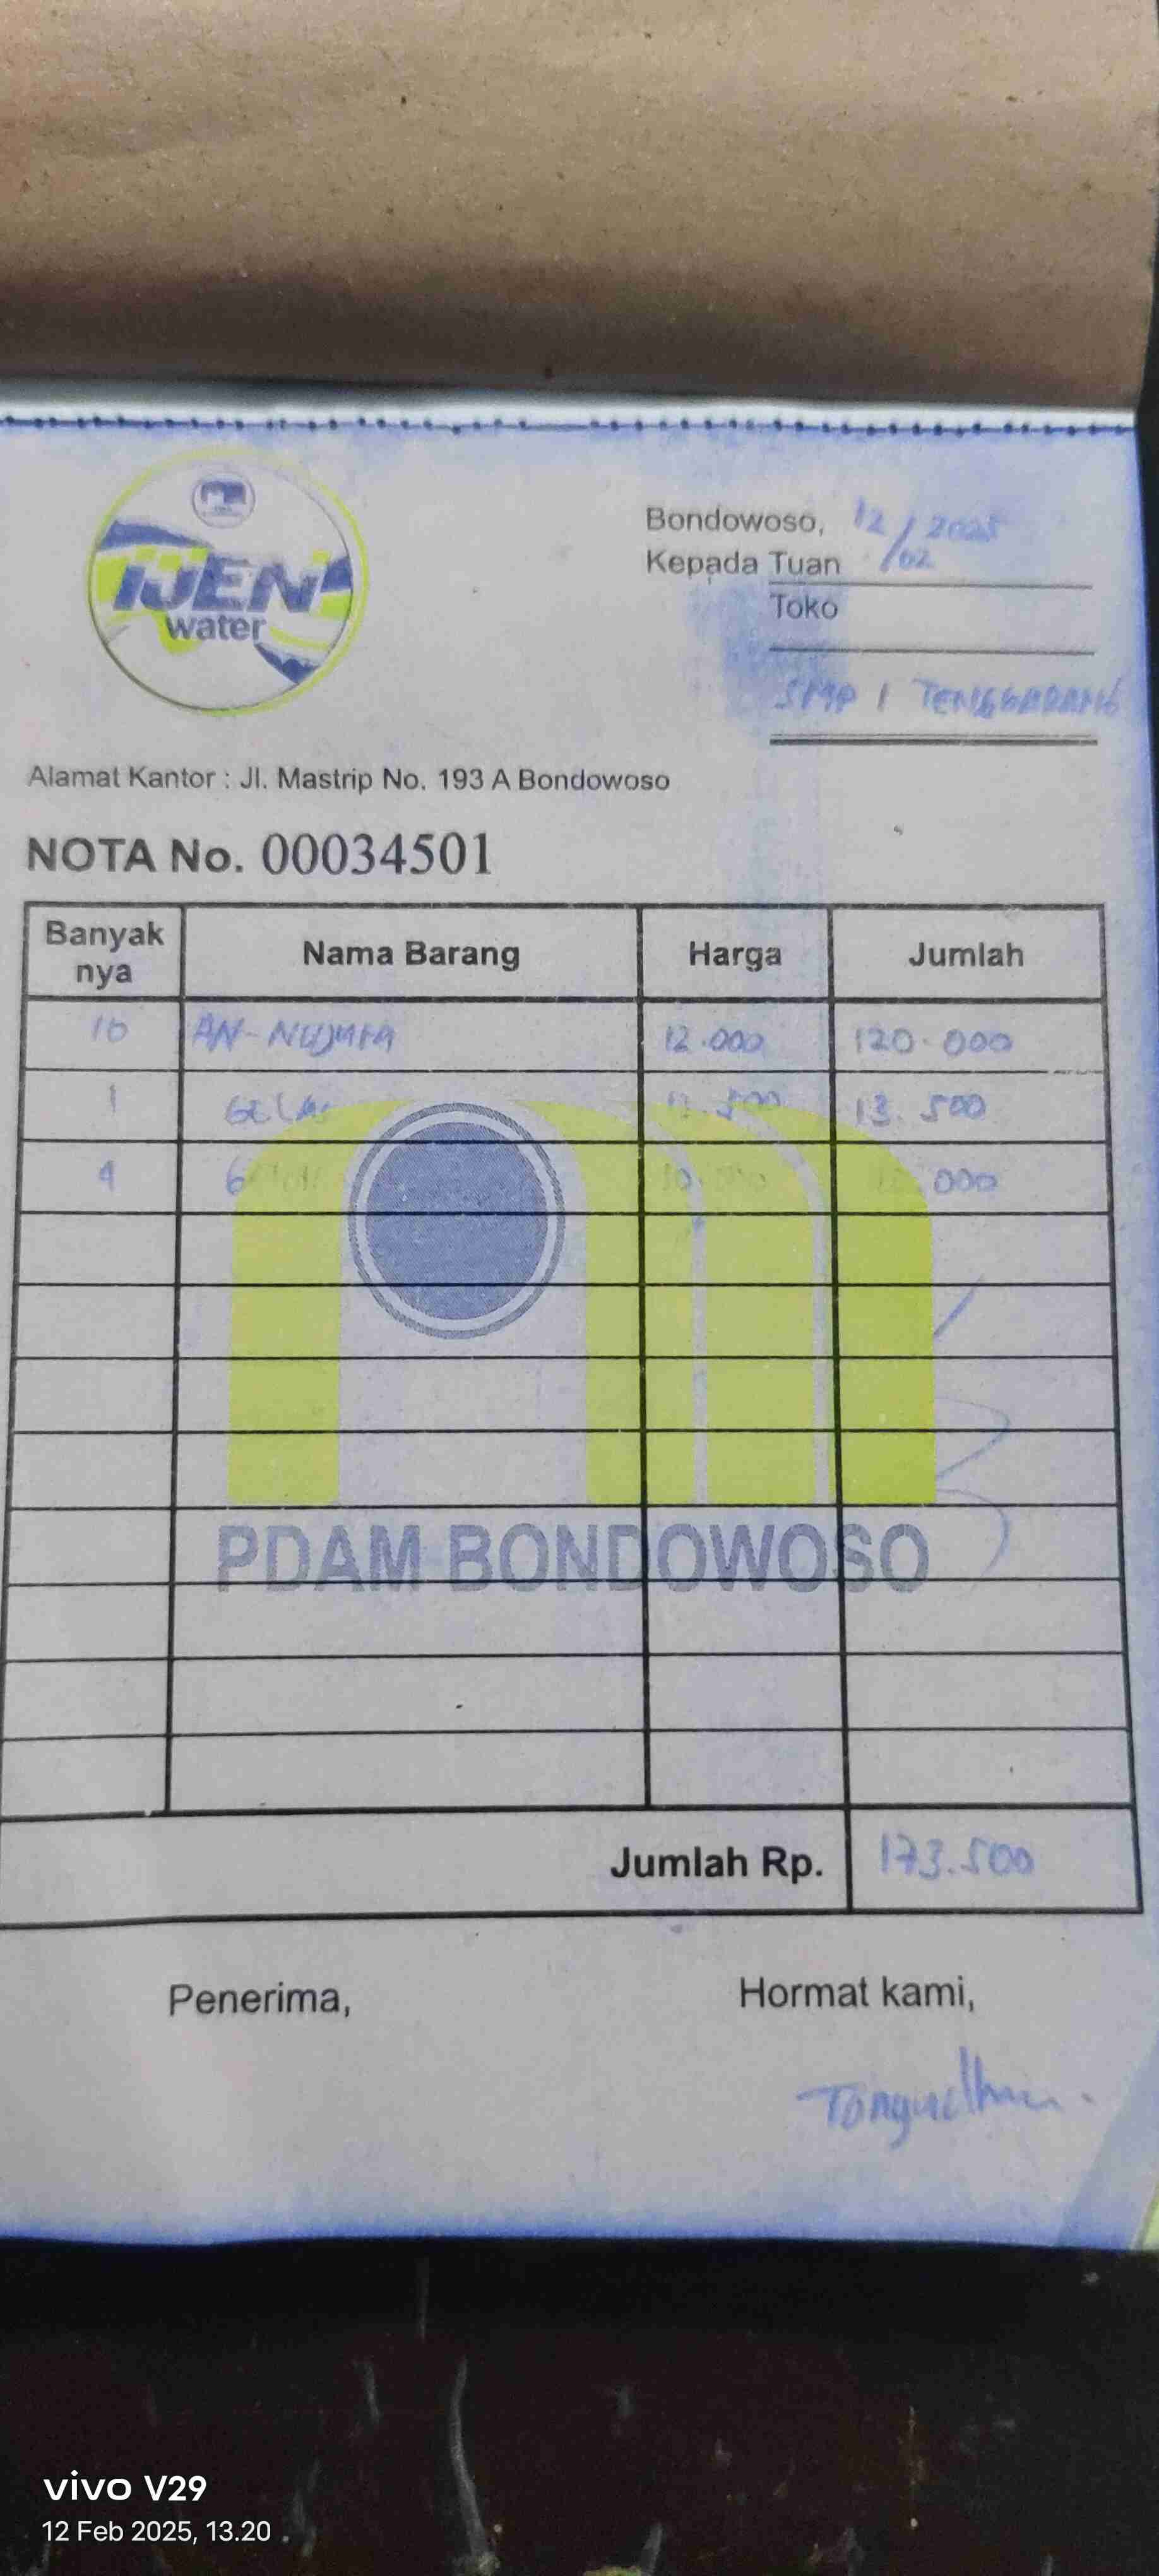 IJEN
water
Bondowoso, 12/02 2025
Kepada Tuan
Toko
SMP 1 TENGGARANG
Alamat Kantor : Jl. Mastrip No. 193 A Bondowoso
NOTA No. 00034501
Banyak nya Nama Barang Harga Jumlah
10 12.000 120.000
1 GELAS 13.500 13.500
4 000
PDAM BONDOWOSO
Jumlah Rp. 173.500
Penerima, Hormat kami,
vivo V29
12 Feb 2025, 13.20